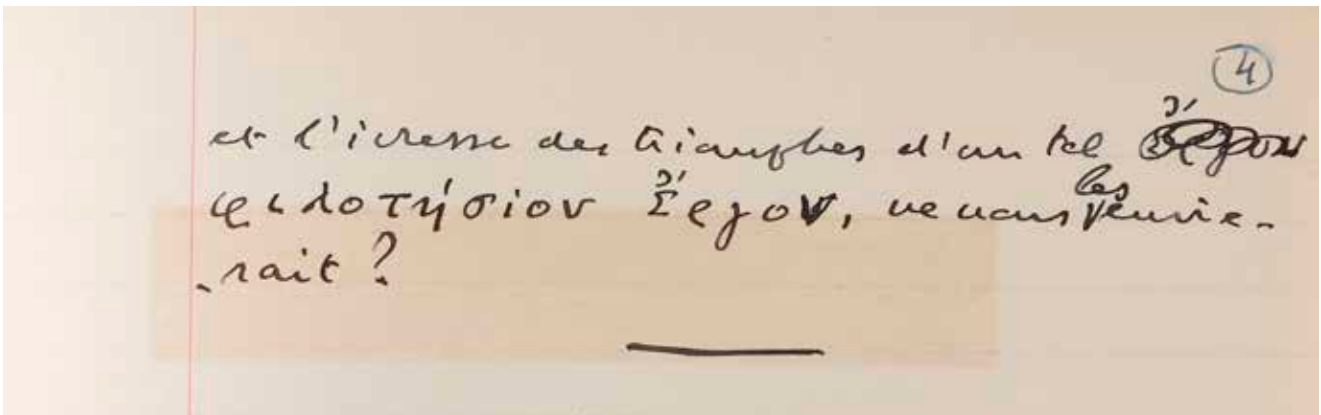 4
et l'ivresse des triomphes d'un tel ἔργον
φιλοτήσιον ἔργον, ne nous les envie-
-rait ?